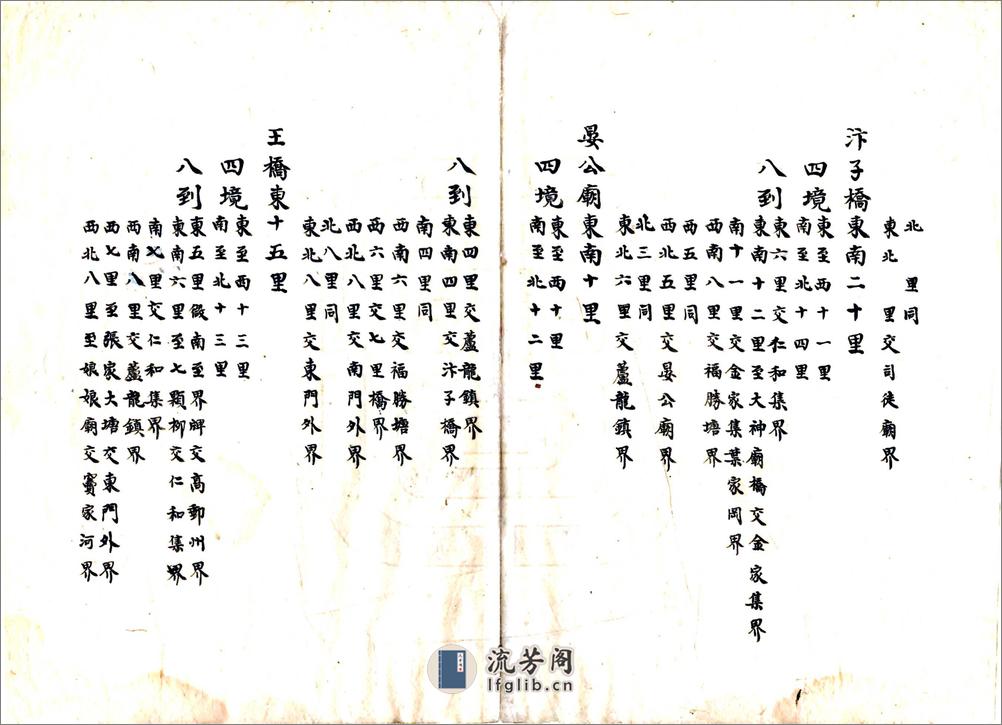 北　里同
東北　里交司徒廟界
汴子橋東南二十里
四境東至西十一里
南至北十四里
八到東六里交仁和集界
東南十二里至大神廟橋交金家集界
南十一里交金家集葉家岡界
西南八里交福勝塘界
西五里同
西北五里交晏公廟界
北三里同
東北六里交蘆龍鎮界
晏公廟東南十里
四境東至西十里
南至北十二里
八到東四里交蘆龍鎮界
東南四里交汴子橋界
南四里同
西南六里交福勝塘界
西六里交七里橋界
西北八里交南門外界
北八里同
東北八里交東門外界
王橋東十五里
四境東至西十三里
南至北十三里
八到東五里級南至界牌交高郵州界
東南六里至七顆柳交仁和集界
南七里交仁和集界
西南八里交蘆龍鎮界
西七里至張家大塘交東門外界
西北八里至娘娘廟交竇家河界
流芳阁
lfglib.cn